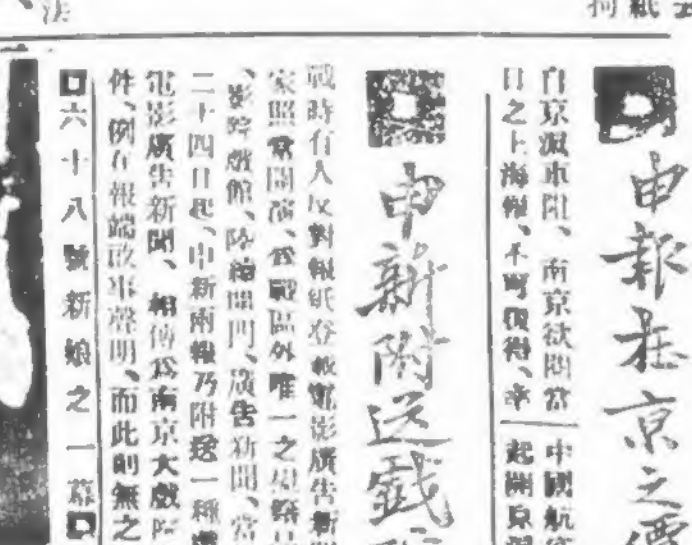 法
何紙
申報在京之價
自京滬車阻、南京欲閱當
日之上海報、不可復得、幸
中國航
起開京
申新附送戲
戰時有人反對報紙登載電影廣告新
家照常開演、爲戰區外唯一之
影戲館、陸續開門、廣告新聞、當
二十四日起、申新兩報乃附送一種
電影廣告新聞、相傳爲南京大戲院
件、例在報端啟事聲明、而此則無之
六十八號新娘之一幕